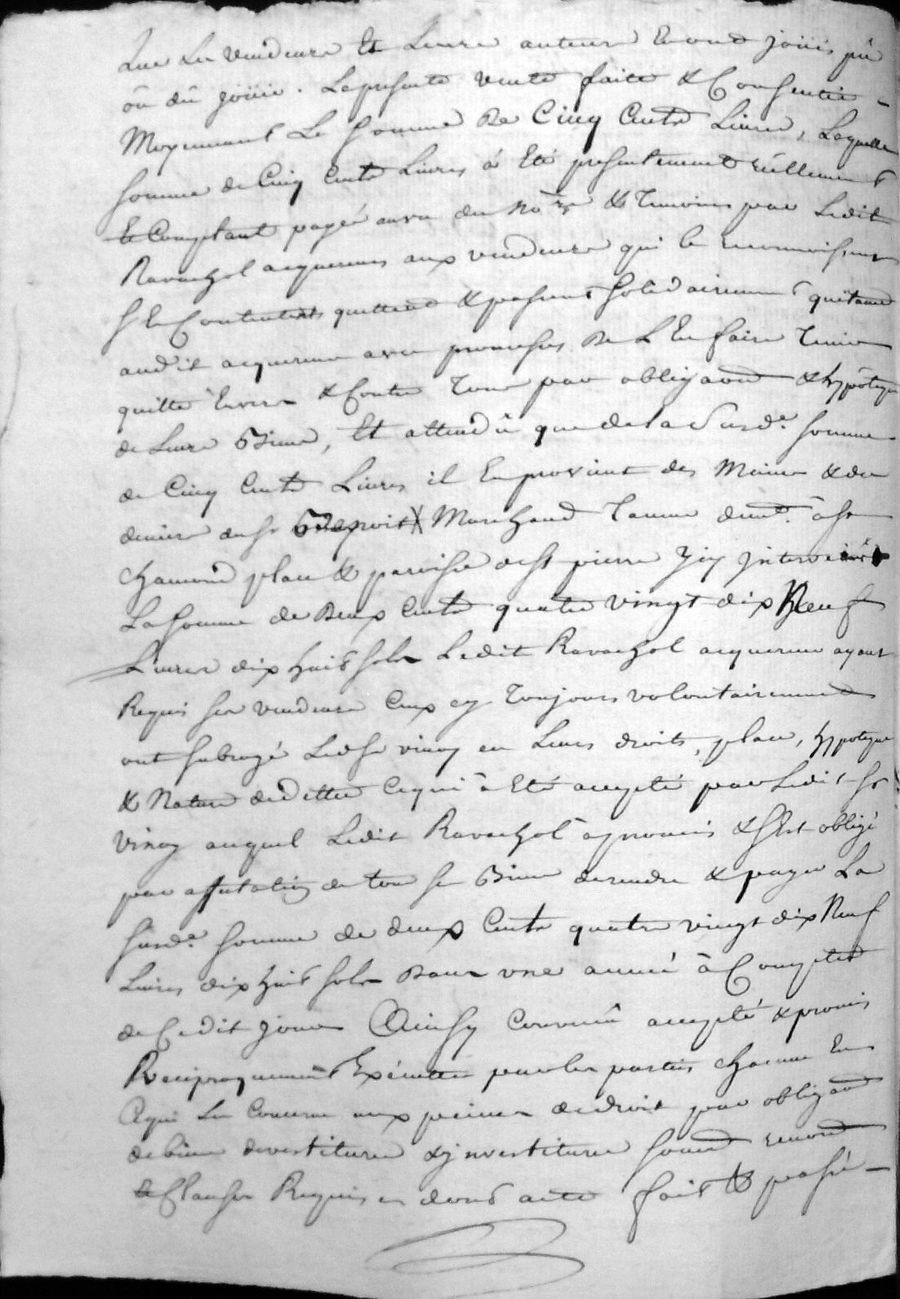 que Les vendeurs Et Leurs auteurs En ont joüis pû
oû dû joüir. La presente vente faite & Consentie
Moyennant La Somme de Cinq Cents Livres, Laquelle
somme de Cinq Cents Livres â Eté presentement réellement
& Comptant payé au vu du No.re & Temoins par Ledit
Ravachol acquereur aux vendeurs qui le reconnoissent
s'En Contentent quittent & passent solidairement quitance
audit acquereur avec promesses de L'En faire Tenir
quitte Envers & Contre Tous par obligaon & hypôteque
de Leurs Biens, Et attendû que de la Susd.e somme
de Cinq Cents Livres il En provient des Mains & des
deniers de Sr Marchand Taneur dem.t â St
chamond place & paroisse de St pierre Icy Intervenant
La somme de Deux Cents quatre vingt dix Neuf
Livres dix huit sols Ledit Ravachol acquereur ayant
Requis ses vendeurs Ceux cy Toujours volontairement
ont subrogé Ledt Sr vinoy en Leurs droits, place, hypoteque
& Nature de dette Ce qui â Eté accepté par Ledit Sr
vinoy auquel Ledit Ravachol a promis & s'Est obligé
par affectation de tous ses Biens de rendre & payer La
Susd.e somme de deux Cents quatre vingt dix Neuf
Livres dix huit sols Dans une année â Compter
de Cedit jour Ainsy Convenû accepté & promis
Reciproquement Executer par les parties chacune En
Ce qui Les Concerne aux peines de droit par obligaon
de biens devestiture & Investiture soumon renonon
& Clauses Requises dont acte fait & passé